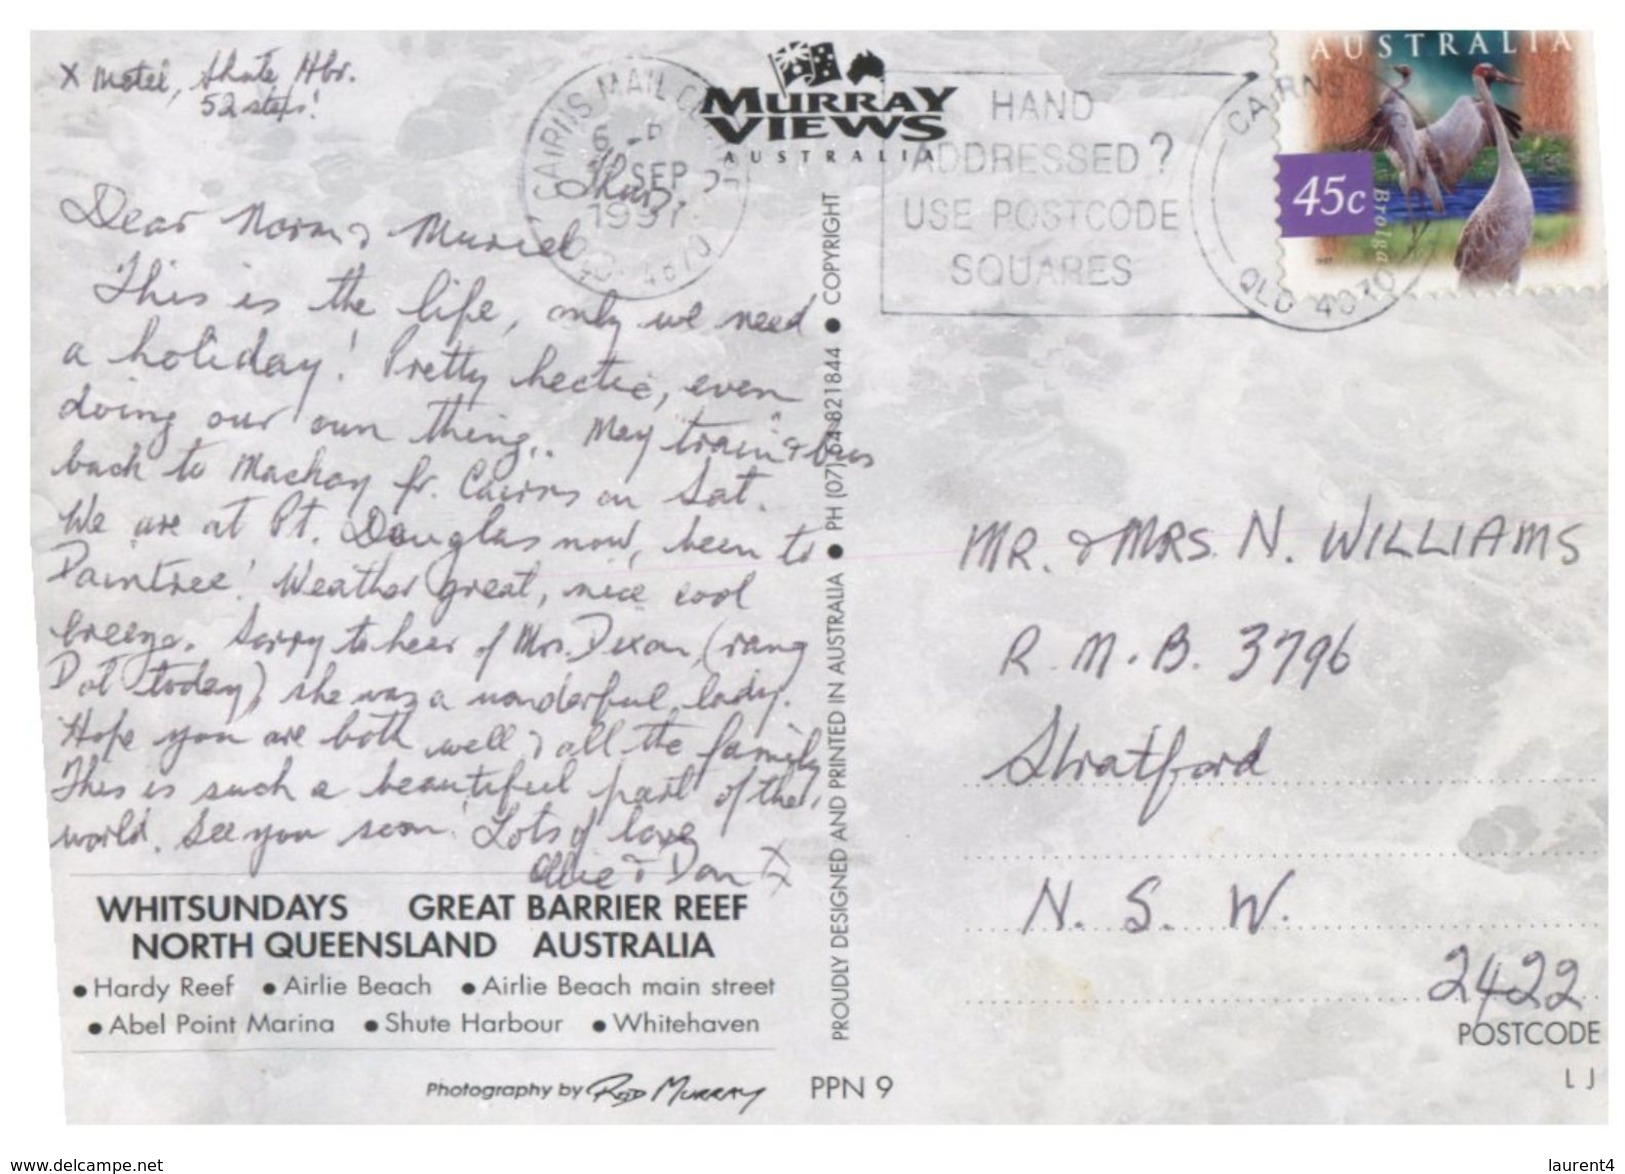 X Motel, Shute Hbr.
52 steps!
Thurs.
Dear Norm & Muriel
This is the life, only we need
a holiday! Pretty hectic, even
doing our own thing.. May "train" & bus
back to Mackay fr. Cairns on Sat.
We are at Pt. Douglas now, been to
Daintree! Weather great, nice cool
breeze. Sorry to hear of Mrs. Dixon, (rang
Dot today) she was a wonderful lady.
Hope you are both well & all the family
This is such a beautiful part of the
world. See you soon! Lots of love
Ollie & Don X
WHITSUNDAYS GREAT BARRIER REEF
NORTH QUEENSLAND AUSTRALIA
● Hardy Reef ● Airlie Beach ● Airlie Beach main street
● Abel Point Marina ● Shute Harbour ● Whitehaven
Photography by ROD MURRAY
PPN 9
MURRAY
VIEWS
AUSTRALIA
PROUDLY DESIGNED AND PRINTED IN AUSTRALIA ● PH (07) 54 821844 ● COPYRIGHT
CAIRNS MAIL
6 - P
SEP
1997
QLD. 4870
HAND
ADDRESSED?
USE POSTCODE
SQUARES
CAIRNS
QLD 4870
AUSTRALIA
45c
Brolga
MR. & MRS. N. WILLIAMS
R. M. B. 3796
Stratford
N. S. W.
2422
POSTCODE
L J
www.delcampe.net
laurent4